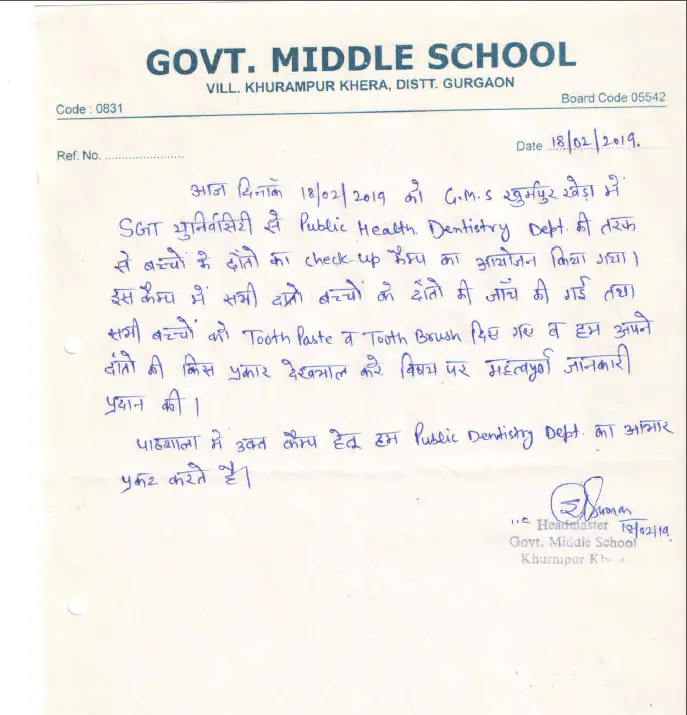 GOVT. MIDDLE SCHOOL
VILL. KHURAMPUR KHERA, DISTT. GURGAON
Code : 0831
Board Code 05542
Ref. No. ..........................
Date 18/02/2019.
आज दिनाँक 18/02/2019 को G.M.S खुर्मपुर खेड़ा में
SGT युनिर्वासिटी से Public Health Dentistry Dept. की तरफ
से बच्चों के दाँतो का check-up कैम्प का आयोजन किया गया।
इस कैम्प में सभी बच्चों के दाँतो की जाँच की गई तथा
सभी बच्चों को Tooth Paste व Tooth Brush दिए गए व हम अपने
दाँतो की किस प्रकार देखभाल करे विषय पर महत्वपूर्ण जानकारी
प्रदान की।
पाठशाला में उक्त कैम्प हेतू हम Public Dentistry Dept. का आभार
प्रकट करते है।
Suman
Headmaster 18/02/19
Govt. Middle School
Khurmpur